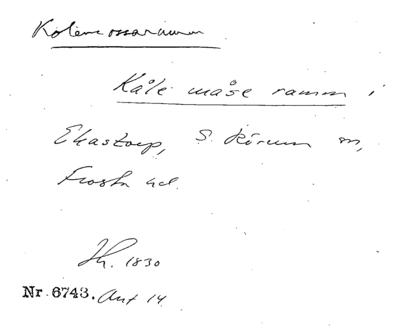 Kolemossaramm
Kåle måse ramm i
Ekastorp, S. Rörum sn,
Frosta hd.
Jh. 1830
Nr 6743. Ant 14